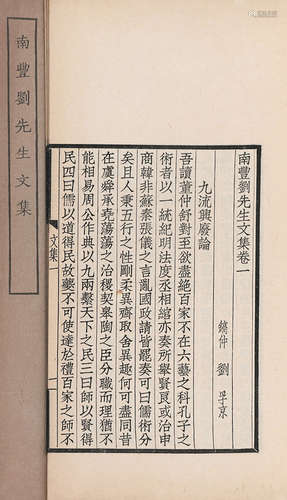 南豐劉先生文集
南豐劉先生文集卷一
鎬仲 劉孚京
九流興廢論
吾讀董仲舒對至欲盡絕百家不在六藝之科孔子之
術者以一統紀明法度丞相綰亦奏所舉賢良或治申
商韓非蘇秦張儀之言亂國政請皆罷奏可曰儒術分
矣且人秉五行之性剛柔異齊取舍異趣何可盡同昔
在虞舜承堯蕩蕩之治稷契皋陶之臣分職而理猶不
能相易周公作典以九兩繫天下之民三曰師以賢得
民四曰儒以道得民故夔不可使達於禮百家之師不
文集一
一